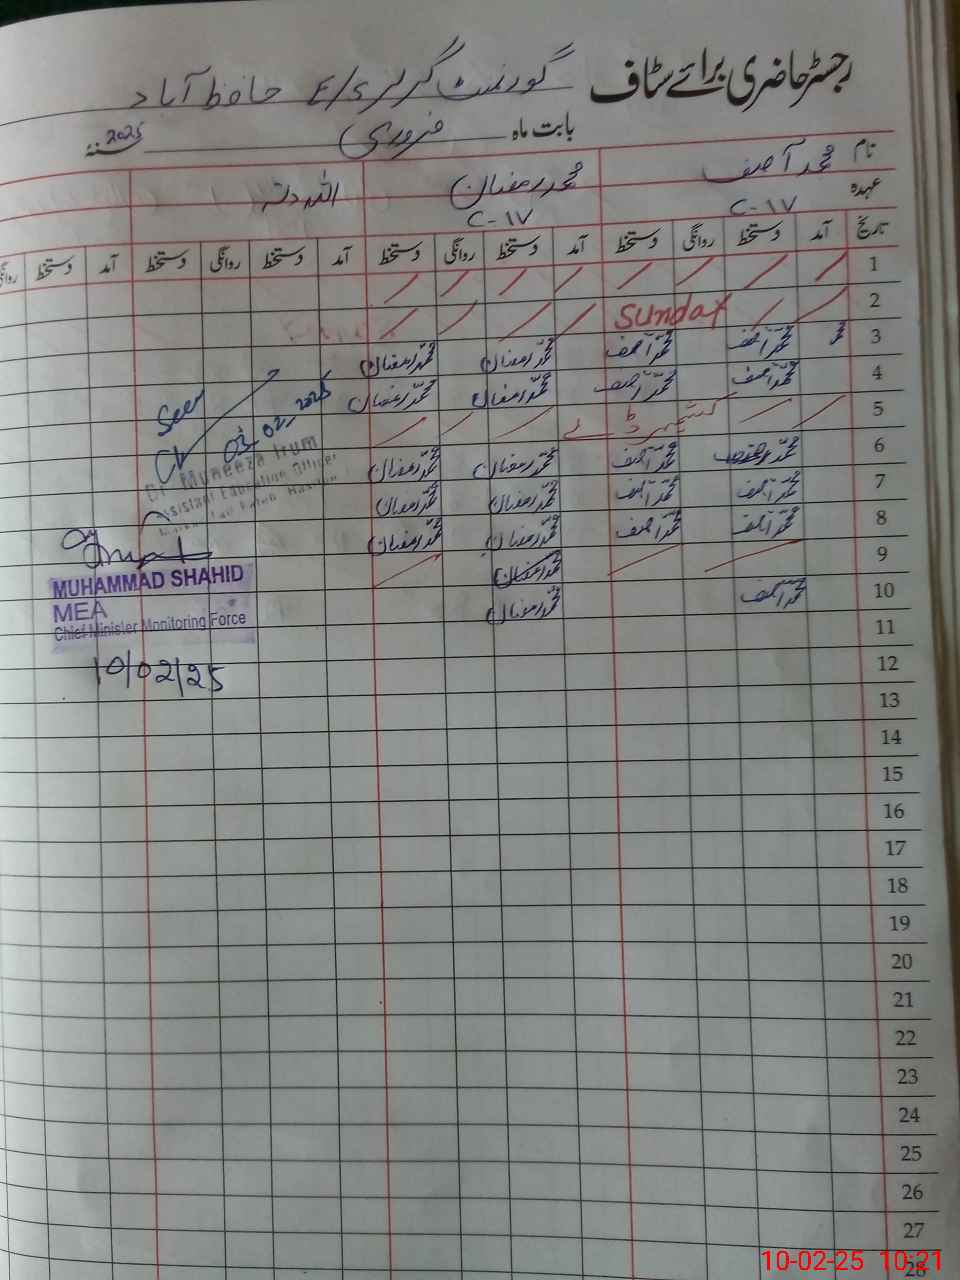 رجسٹر حاضری برائے سٹاف گورنمنٹ گرلز E/S حافظ آباد
بابت ماہ فروری سنہ 2025
نام محمد آصف محمد رمضان اللہ دتہ
عہدہ C-IV C-IV
تاریخ آمد دستخط روانگی دستخط آمد دستخط روانگی دستخط آمد دستخط روانگی دستخط آمد دستخط روانگی
1
2 Sunday
3 محمد آصف محمد آصف محمد رمضان محمد رمضان
4 محمد آصف محمد آصف محمد رمضان محمد رمضان
5 کشمیر ڈے
6 محمد آصف محمد رمضان محمد رمضان
7 محمد آصف محمد آصف محمد رمضان محمد رمضان
8 محمد آصف محمد آصف محمد رمضان محمد رمضان
9 محمد رمضان
10 محمد آصف محمد رمضان
11
12
13
14
15
16
17
18
19
20
21
22
23
24
25
26
27
28
Seen
03/02/2025
Dr Muneeza Irum
Assistant Education Officer
MUHAMMAD SHAHID
MEA
Chief Minister Monitoring Force
10/02/25
10-02-25 10:21